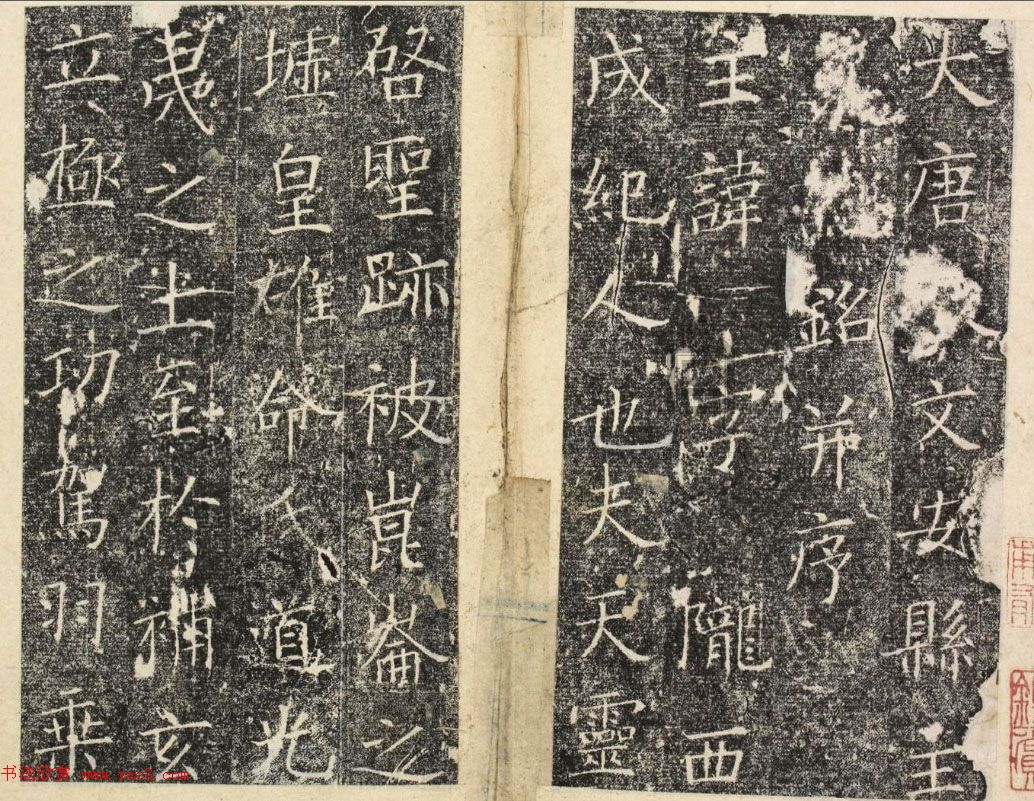 大唐文安縣主
銘并序
主諱字隴西
成紀人也夫天靈
啓聖跡被崑崙之
墟皇雄命氏道光
夷之土至於補玄
立極之功駕羽乘
书法欣赏 www.yac8.com